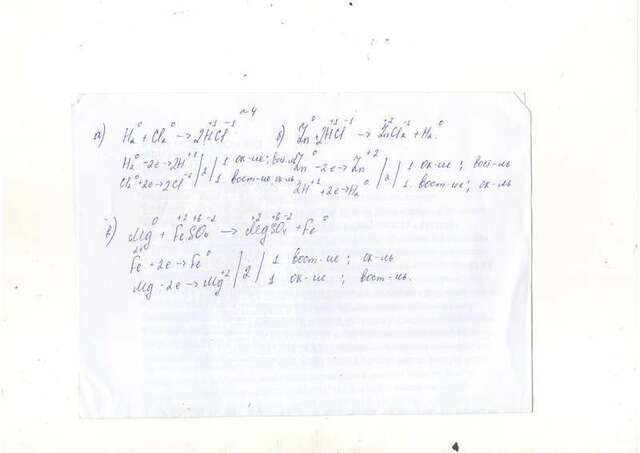 №4
а) H₂⁰ + Cl₂⁰ → 2H⁺¹Cl⁻¹
H₂⁰ -2e → 2H⁺¹ | 2 | 1 ок-ие; вост-ль
Cl₂⁰ +2e → 2Cl⁻¹ | 1 вост-ие, ок-ль
б) Zn⁰ + 2H⁺¹Cl⁻¹ → Zn⁺²Cl₂⁻¹ + H₂⁰
Zn⁰ -2e → Zn⁺² | 2 | 1 ок-ие; вост-ль
2H⁺¹ +2e → H₂⁰ | 1. вост-ие; ок-ль
в) Mg⁰ + Fe⁺²S⁺⁶O₄⁻² → Mg⁺²S⁺⁶O₄⁻² + Fe⁰
Fe⁺² +2e → Fe⁰ | 2 | 1 вост-ие; ок-ль
Mg -2e → Mg⁺² | 1 ок-ие; вост-ль.